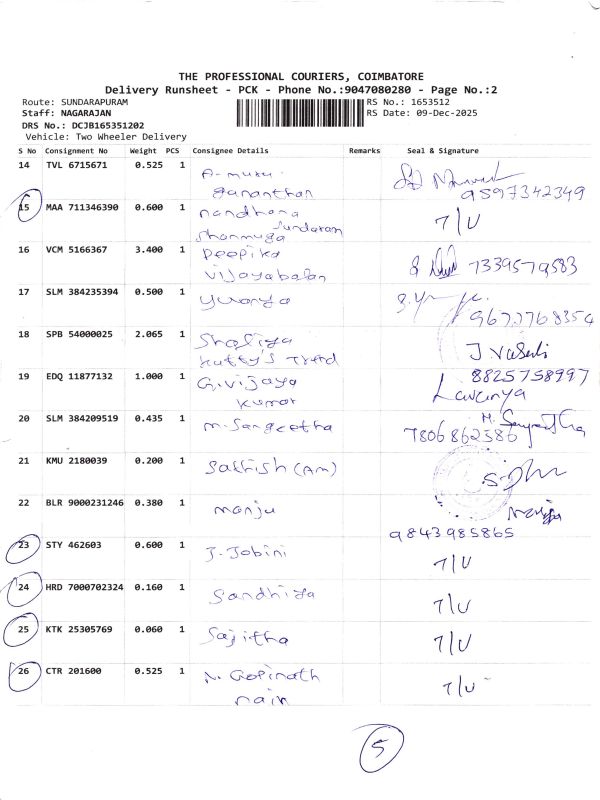 THE PROFESSIONAL COURIERS, COIMBATORE
Delivery Runsheet - PCK - Phone No.:9047080280 - Page No.:2
Route: SUNDARAPURAM RS No.: 1653512
Staff: NAGARAJAN RS Date: 09-Dec-2025
DRS No.: DCJB165351202
Vehicle: Two Wheeler Delivery
S No Consignment No Weight PCS Consignee Details Remarks Seal & Signature
14 TVL 6715671 0.525 1 A-muru.
gananthan 9597342349
15 MAA 711346390 0.600 1 nandhana T/U
Sundaram
Shanmuga
16 VCM 5166367 3.400 1 Deepika 7339579583
Vijayabalan
17 SLM 384235394 0.500 1 yuvanya
9677768354
18 SPB 54000025 2.065 1 Shaliya
Kutty's Trend J Vasuki
19 EDQ 11877132 1.000 1 G.vijaya 8825758997
Kumar Lavanya
20 SLM 384209519 0.435 1 m.Sangeetha M. Sangeetha
7806862586
21 KMU 2180039 0.200 1 Sathish (Am)
22 BLR 9000231246 0.380 1 manju Manju
9843985865
23 STY 462603 0.600 1 J.Jobini T/U
24 HRD 7000702324 0.160 1 Sandhiya T/U
25 KTK 25305769 0.060 1 Sajitha T/U
26 CTR 201600 0.525 1 N. Gopinath T/U
nain
5